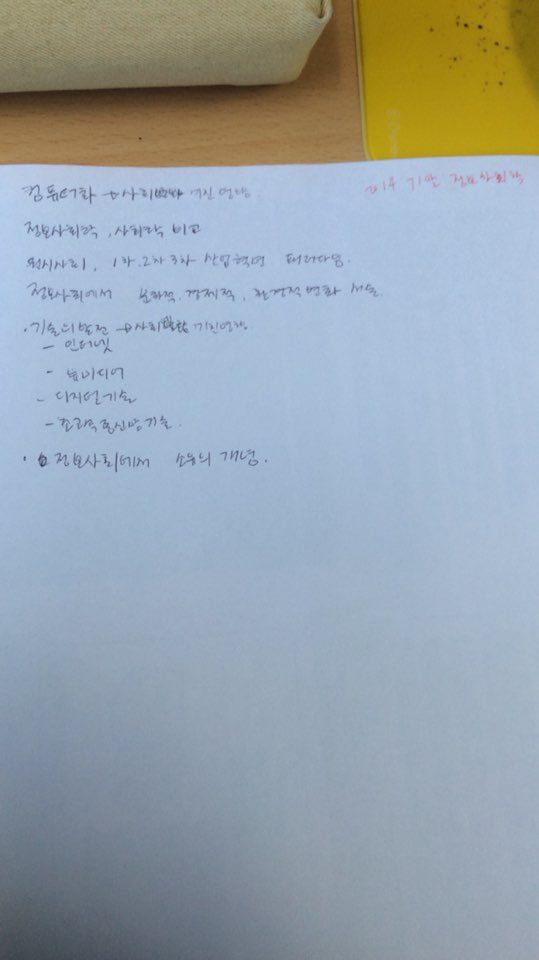 기말 정보사회학
컴퓨터화 → 사회 끼친 영향
정보사회학, 사회학 비교
원시사회, 1차. 2차 3차 산업혁명 패러다임.
정보사회에서 문화적, 경제적, 환경적 변화 서술.
· 기술의 발전 → 사회 끼친 영향
- 인터넷
- 뉴미디어
- 디지털기술
- 초고속통신망기술.
· 정보사회에서 소유의 개념.